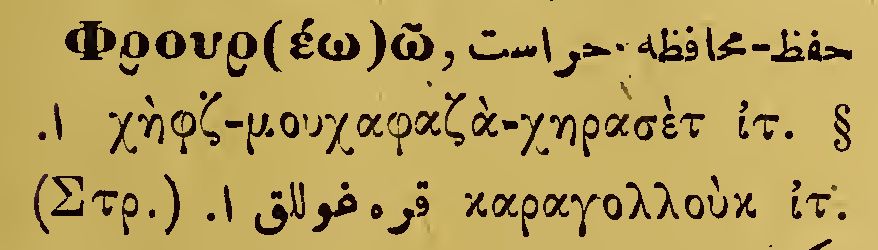 Φρουρ(έω)ῶ, حفظ-محافظه-حراست
ا. χὴφζ-μουχαφαζὰ-χηρασὲτ ἰτ. §
(Στρ.) ا. قره غوللق καραγολλοὺκ ἰτ.